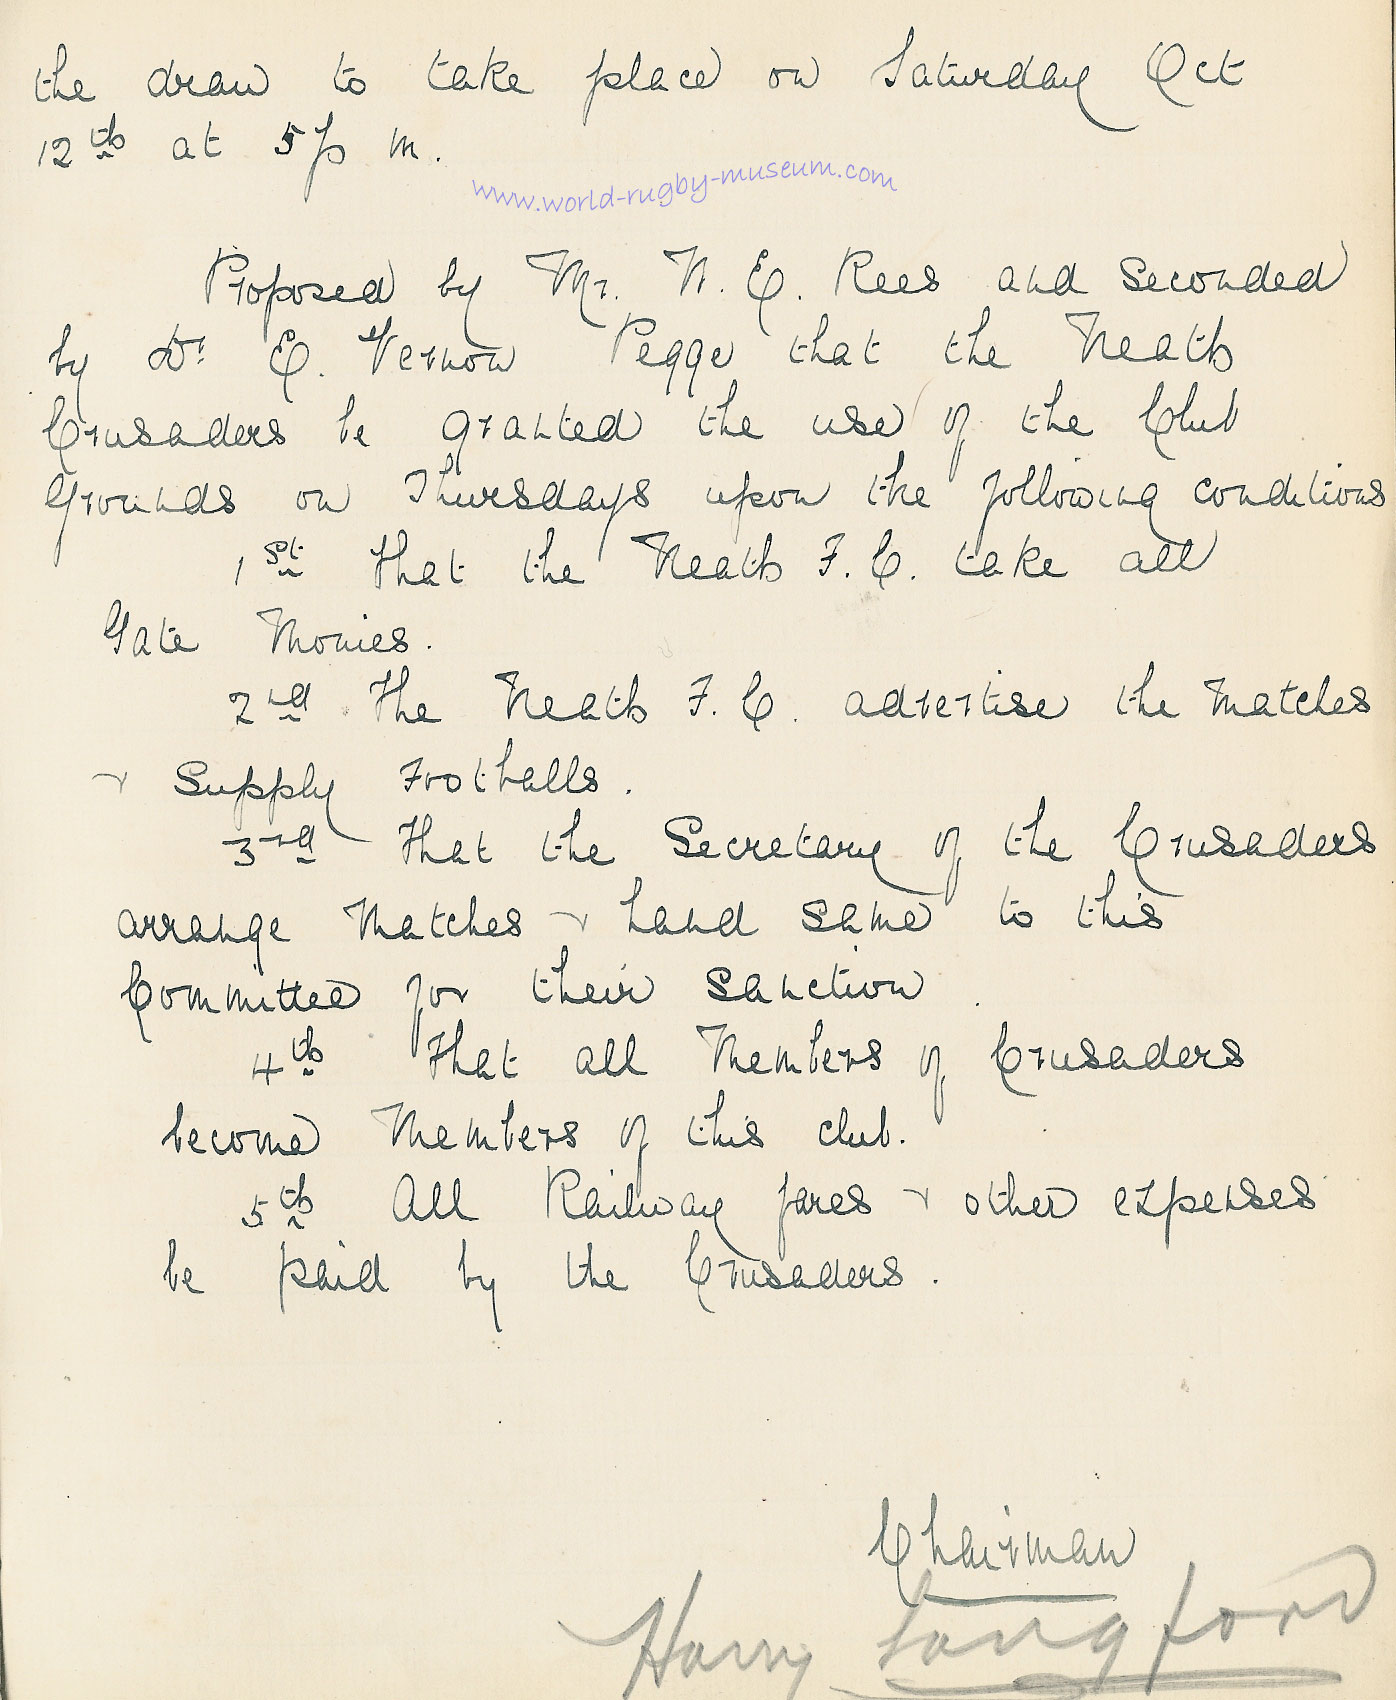 the draw to take place on Saturday Oct
12th at 5 p m.
www.world-rugby-museum.com
Proposed by Mr. W. E. Rees and Seconded
by Dr E. Vernon Pegge that the Neath
Crusaders be granted the use of the Club
Grounds on Thursdays upon the following conditions
1st That the Neath F. C. take all
Gate Monies.
2nd The Neath F. C. advertise the Matches
& Supply Footballs.
3rd That the Secretary of the Crusaders
arrange Matches & hand same to this
Committee for their Sanction.
4th That all Members of Crusaders
become Members of this club.
5th All Railway fares & other expenses
be paid by the Crusaders.
Chairman
Harry Langford